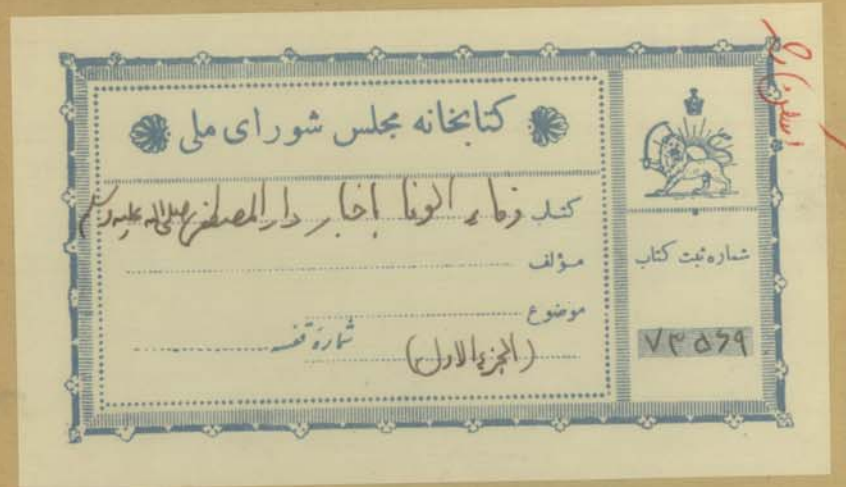 کتابخانه مجلس شورای ملی
کتاب وفاء الوفا باخبار دار المصطفی صلی الله علیه وسلم
مؤلف
موضوع
شمارهٔ قفسه
(الجزء الاول)
شماره ثبت کتاب
۷۳۵۶۹